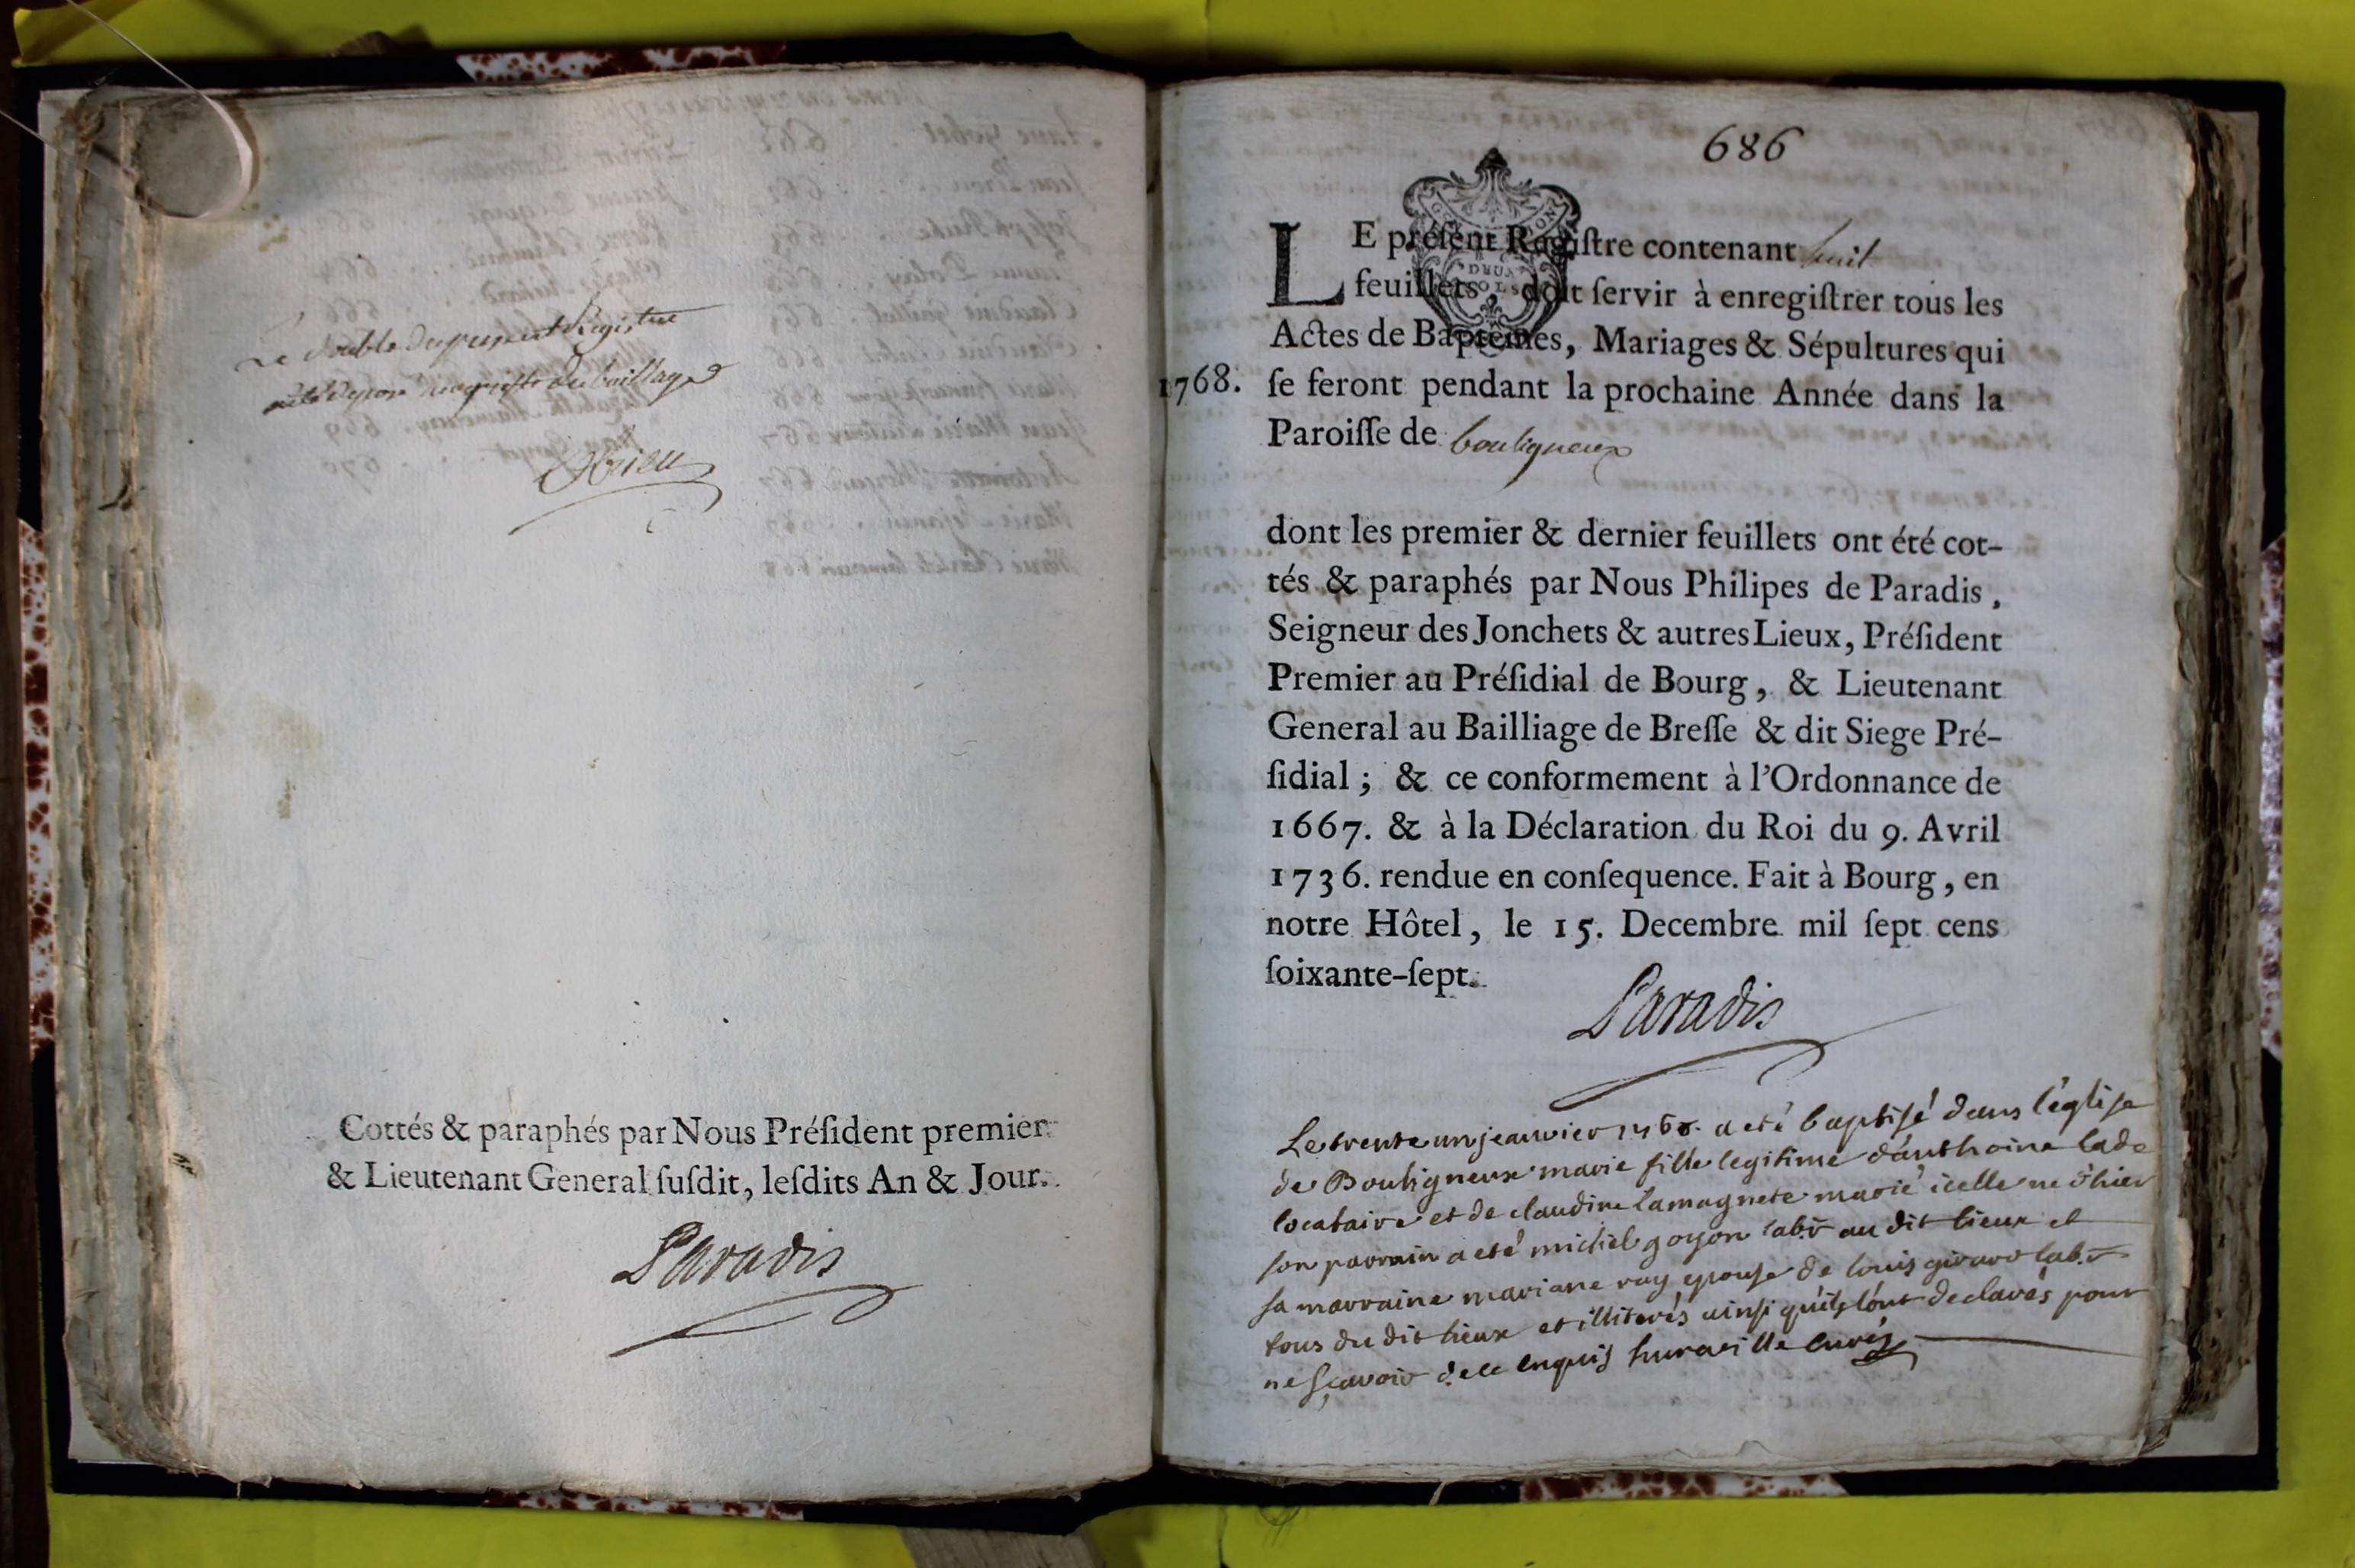 Le double du present Registre
a été deposé au greffe du bailliage
Cottés & paraphés par Nous Préſident premier
& Lieutenant General ſuſdit, leſdits An & Jour.
Paradis
686
LE préſent Regiſtre contenant huit
feuillets, doit ſervir à enregiſtrer tous les
Actes de Baptêmes, Mariages & Sépultures qui
1768. ſe feront pendant la prochaine Année dans la
Paroiſſe de bouligneux
DEUX
SOLS
dont les premier & dernier feuillets ont été cot-
tés & paraphés par Nous Philipes de Paradis,
Seigneur des Jonchets & autres Lieux, Préſident
Premier au Préſidial de Bourg, & Lieutenant
General au Bailliage de Breſſe & dit Siege Pré-
ſidial; & ce conformement à l'Ordonnance de
1667. & à la Déclaration du Roi du 9. Avril
1736. rendue en conſequence. Fait à Bourg, en
notre Hôtel, le 15. Decembre mil ſept cens
ſoixante-ſept.
Paradis
Le trente un jeanvier 1768. a eté baptisé dans l'église
de Bouligneux marie fille legitime d'anthoine lade
locataire et de claudine Lamagnete marié icelle ne d'hier
son parrain a eté michel goyon labr au dit lieux et
sa marraine mariane ray epouse de louis girard labr
tous du dit lieux et illiterés ainsi qu'ils l'ont declarés pour
ne sçavoir de ce enquis curés